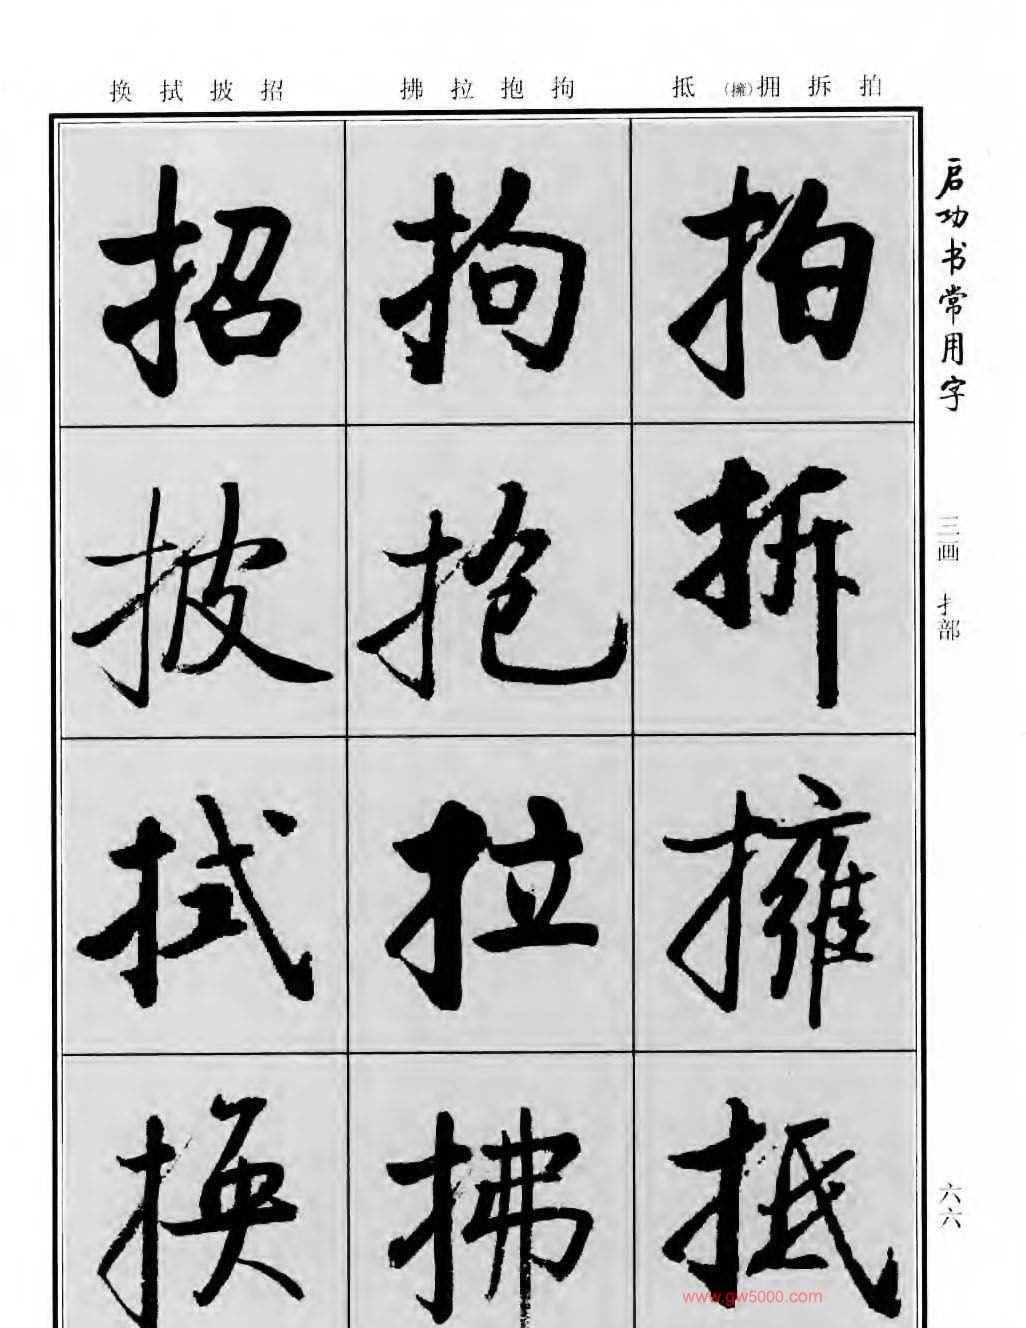 拍拆拥(擁)抵
拘抱拉拂
招披拭换
拍
拆
擁
抵
拘
抱
拉
拂
招
披
拭
换
启功书常用字
三画 扌部
六六
www.gw5000.com